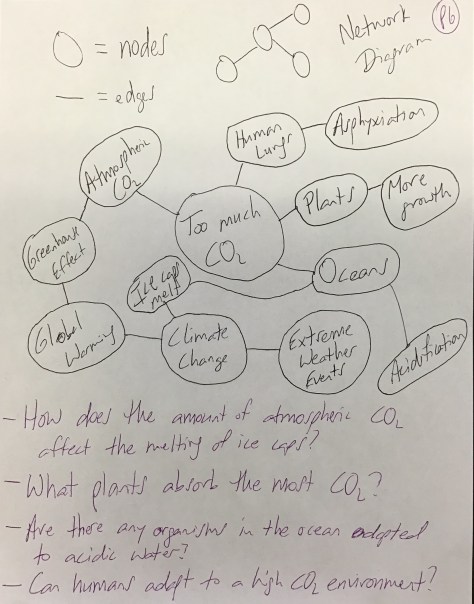 P6
Network
Diagram
= nodes
= edges
Human
Lungs
Asphyxiation
Atmospheric
CO2
Plants
More
growth
Too much
CO2
Greenhouse
Effect
Ice caps
melt
Oceans
Global
Warming
Climate
Change
Extreme
Weather
Events
Acidification
- How does the amount of atmospheric CO2
affect the melting of ice caps?
- What plants absorb the most CO2?
- Are there any organisms in the ocean adapted
to acidic water?
- Can humans adapt to a high CO2 environment?